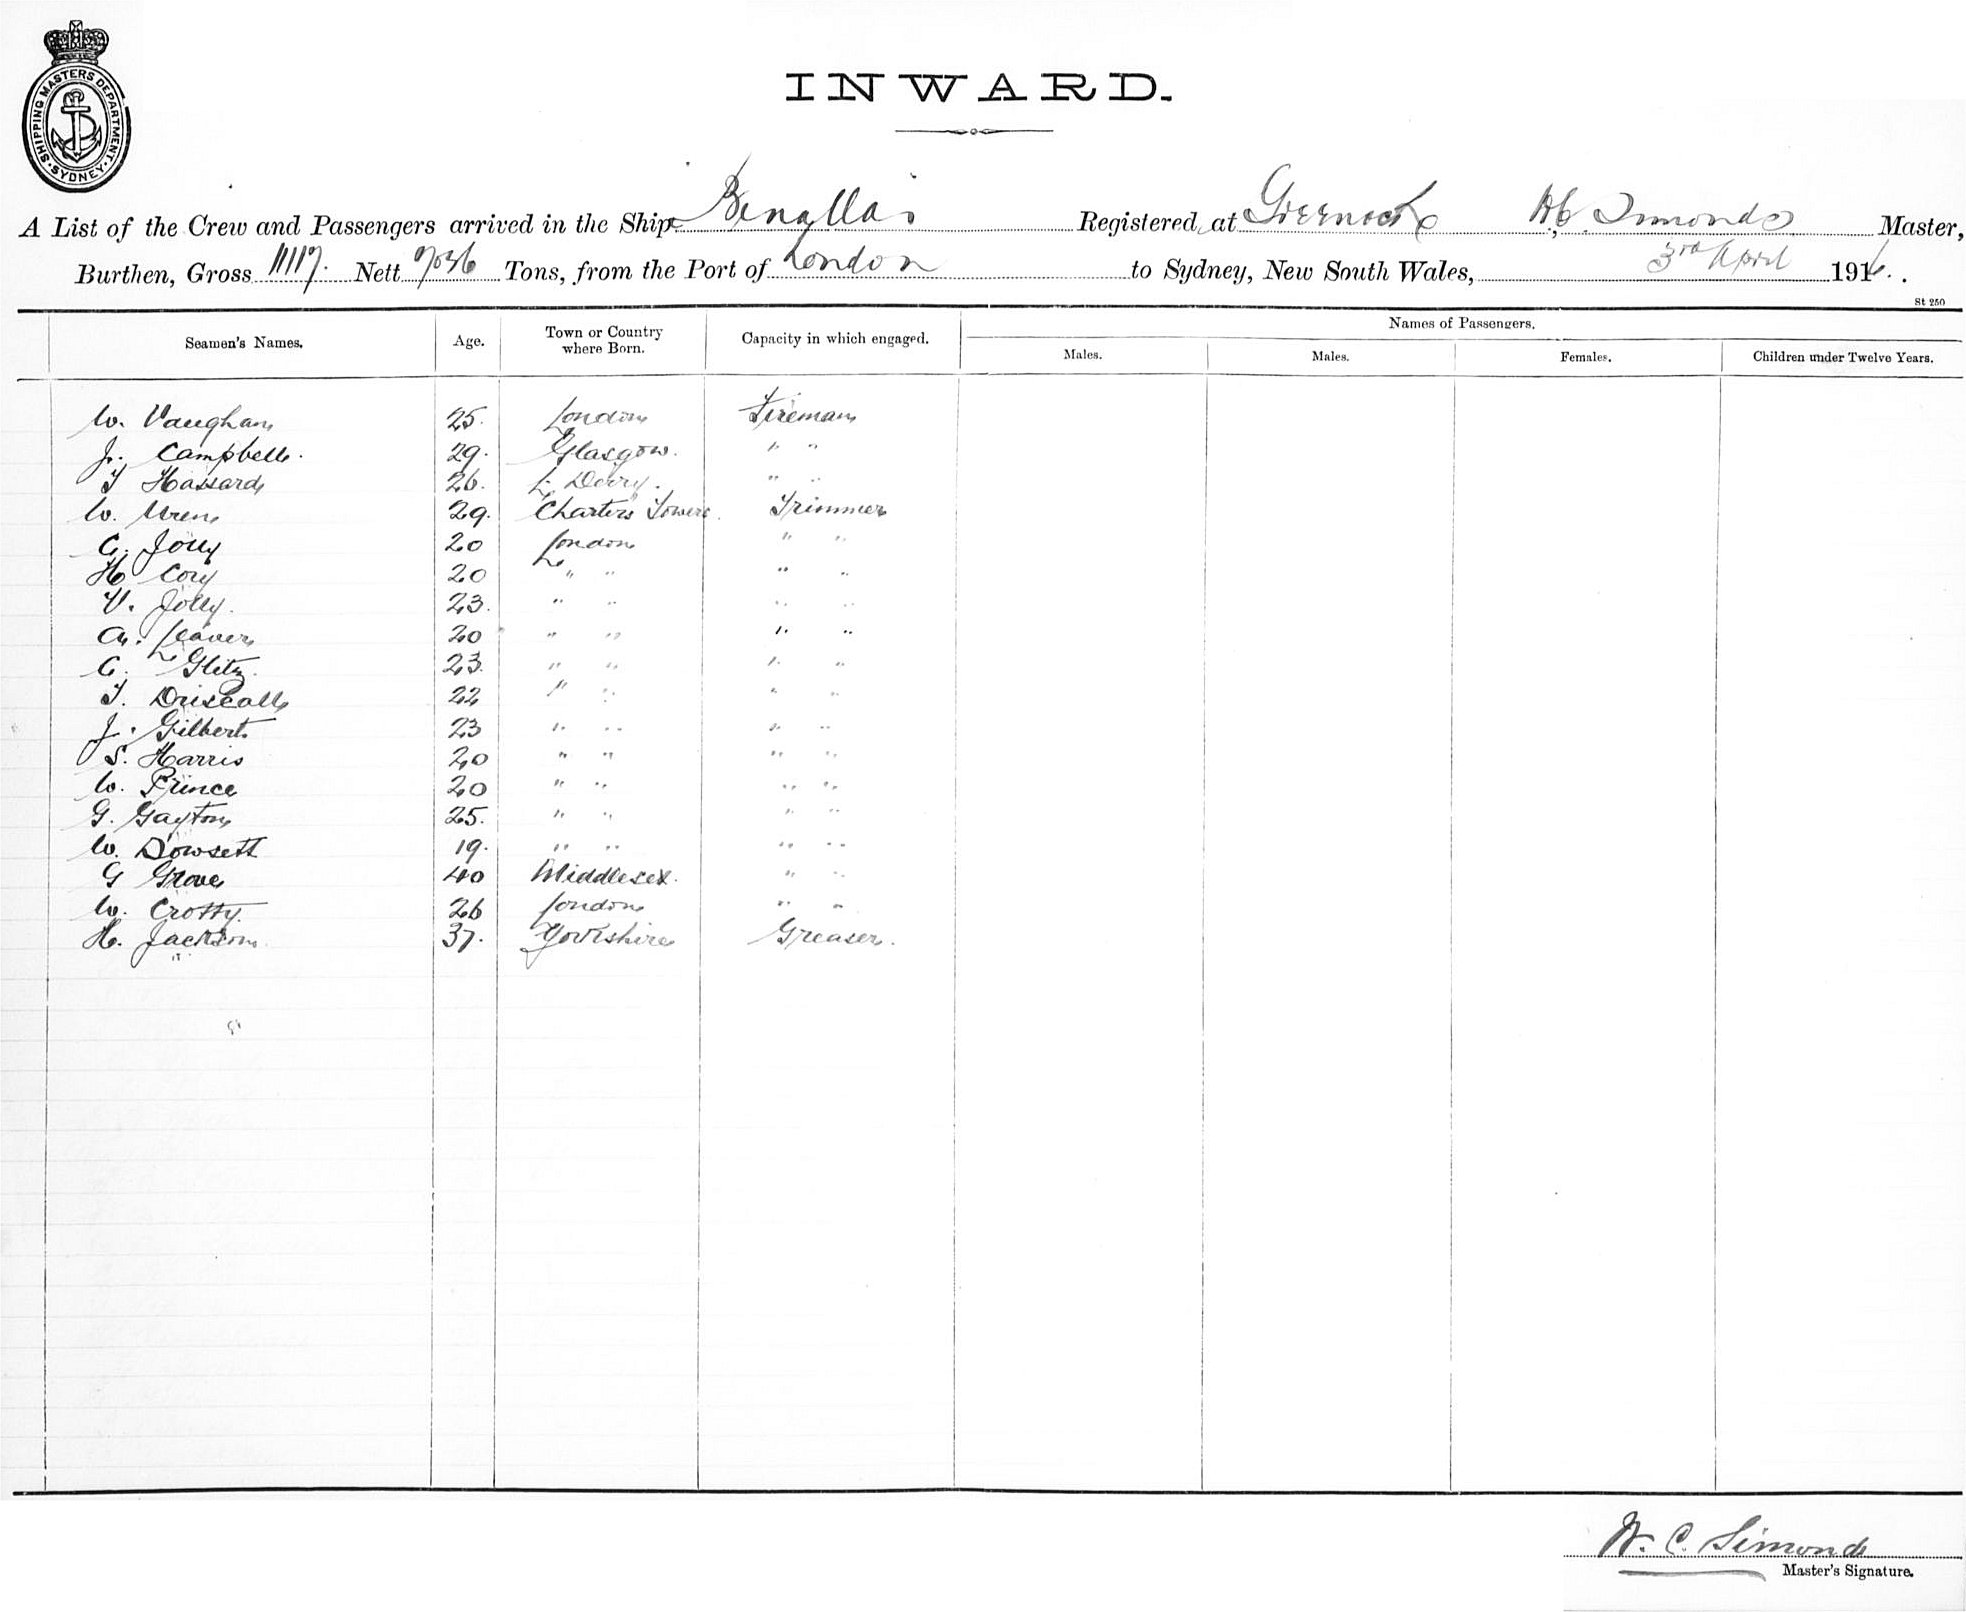 SHIPPING MASTERS DEPARTMENT · SYDNEY ·
INWARD.
A List of the Crew and Passengers arrived in the Ship Benalla Registered at Greenock Master,
Burthen, Gross 11117. Nett 7036 Tons, from the Port of London to Sydney, New South Wales, 3rd April 1916.
St 250
Seamen's Names. Age. Town or Country where Born. Capacity in which engaged. Names of Passengers.
Males. Males. Females. Children under Twelve Years.
W. Vaughan 25. London Fireman
J. Campbell. 29. Glasgow. " "
T Hassard 26. L. Derry. " "
W. Wren 29. Charters Towers. Trimmer
C. Jolly 20 London " "
H Cory 20 " " " "
V. Jolly. 23. " " " "
A. Leaver 20 " " " "
C. Glitz. 23. " " " "
T. Driscoll 22 " " " "
J. Gilbert 23 " " " "
S. Harris 20 " " " "
W. Prince 20 " " " "
G. Gayton 25. " " " "
W. Dowsett 19. " " " "
G Grove 40 Middlesex. " "
W. Crotty. 26 London " "
H. Jackson. 37. Yorkshire Greaser.
W. C. Simonds
Master's Signature.